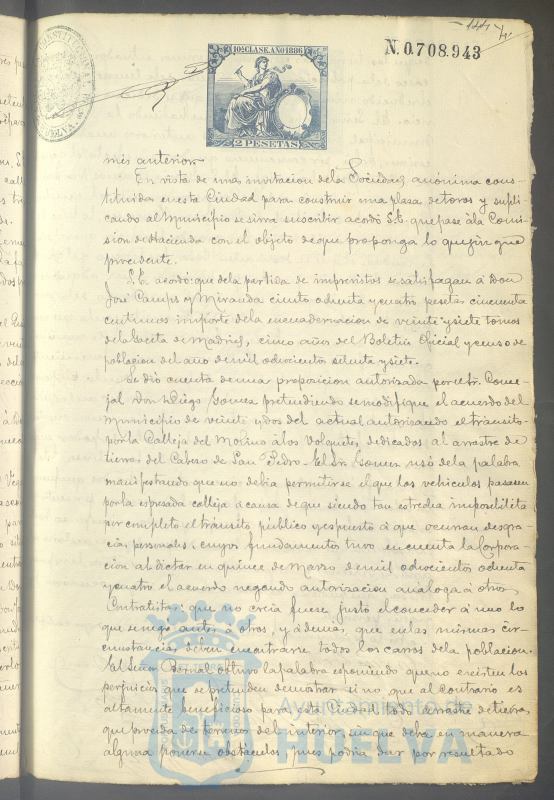 N. 0.708.943
10ª CLASE. AÑO 1886
2 PESETAS
mes anterior
En vista de una invitacion dela Sociedad anónima cons-
tituida en esta Ciudad para construir una plaza de toros y supli-
cando al Municipio se sirva suscribir acordó S.E. que pase á la Comi-
sion de Hacienda con el objeto de que proponga lo que juzgue
procedente.
S.E. acordó: que dela partida de imprevistos se satisfagan á Don
José Camps y Miranda ciento ochenta y cuatro pesetas cincuenta
centimos importe dela encuadernacion de veinte y siete tomos
dela Gaceta de Madrid, cinco años del Boletin Oficial y censo de
poblacion del año de mil ochocientos setenta y siete.
Se dió cuenta de una proposicion autorizada por el Sr. Conce-
jal Don Diego Gomez pretendiendo se modifique el acuerdo del
Municipio de veinte y dos del actual autorizando el tránsito
por la Calleja del Molino á los volquetes dedicados al arrastre de
tierras del Cabezo de San Pedro. El Sr. Gomez usó dela palabra
manifestando que no debia permitirse el que los vehiculos pasasen
por la espresada calleja á causa de que siendo tan estrecha imposibilita
por completo el tránsito público y espuesto á que ocurran desgra-
cias personales, cuyos fundamentos tuvo en cuenta la Corpora-
cion al dictar en quince de Marzo de mil ochocientos ochenta
y cuatro el acuerdo negando autorizacion análoga á otros
Contratistas: que no creia fuese justo el conceder á uno lo
que se negó antes á otros, y ademas, que en las mismas cir-
cunstancias deben encontrarse todos los carros dela poblacion.
El Señor Bernal obtuvo la palabra esponiendo que no existen los
perjuicios que se pretenden demostrar sino que al contrario es
altamente beneficioso para esta Ciudad todo arrastre de tierra
que proceda de terrenos del interior, sin que deba en manera
alguna ponerse obstáculos, pues podria dar por resultado
Ayuntamiento de
HUELVA